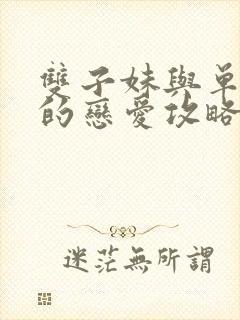 雙子妹與單
的戀愛攻略
迷茫無所謂